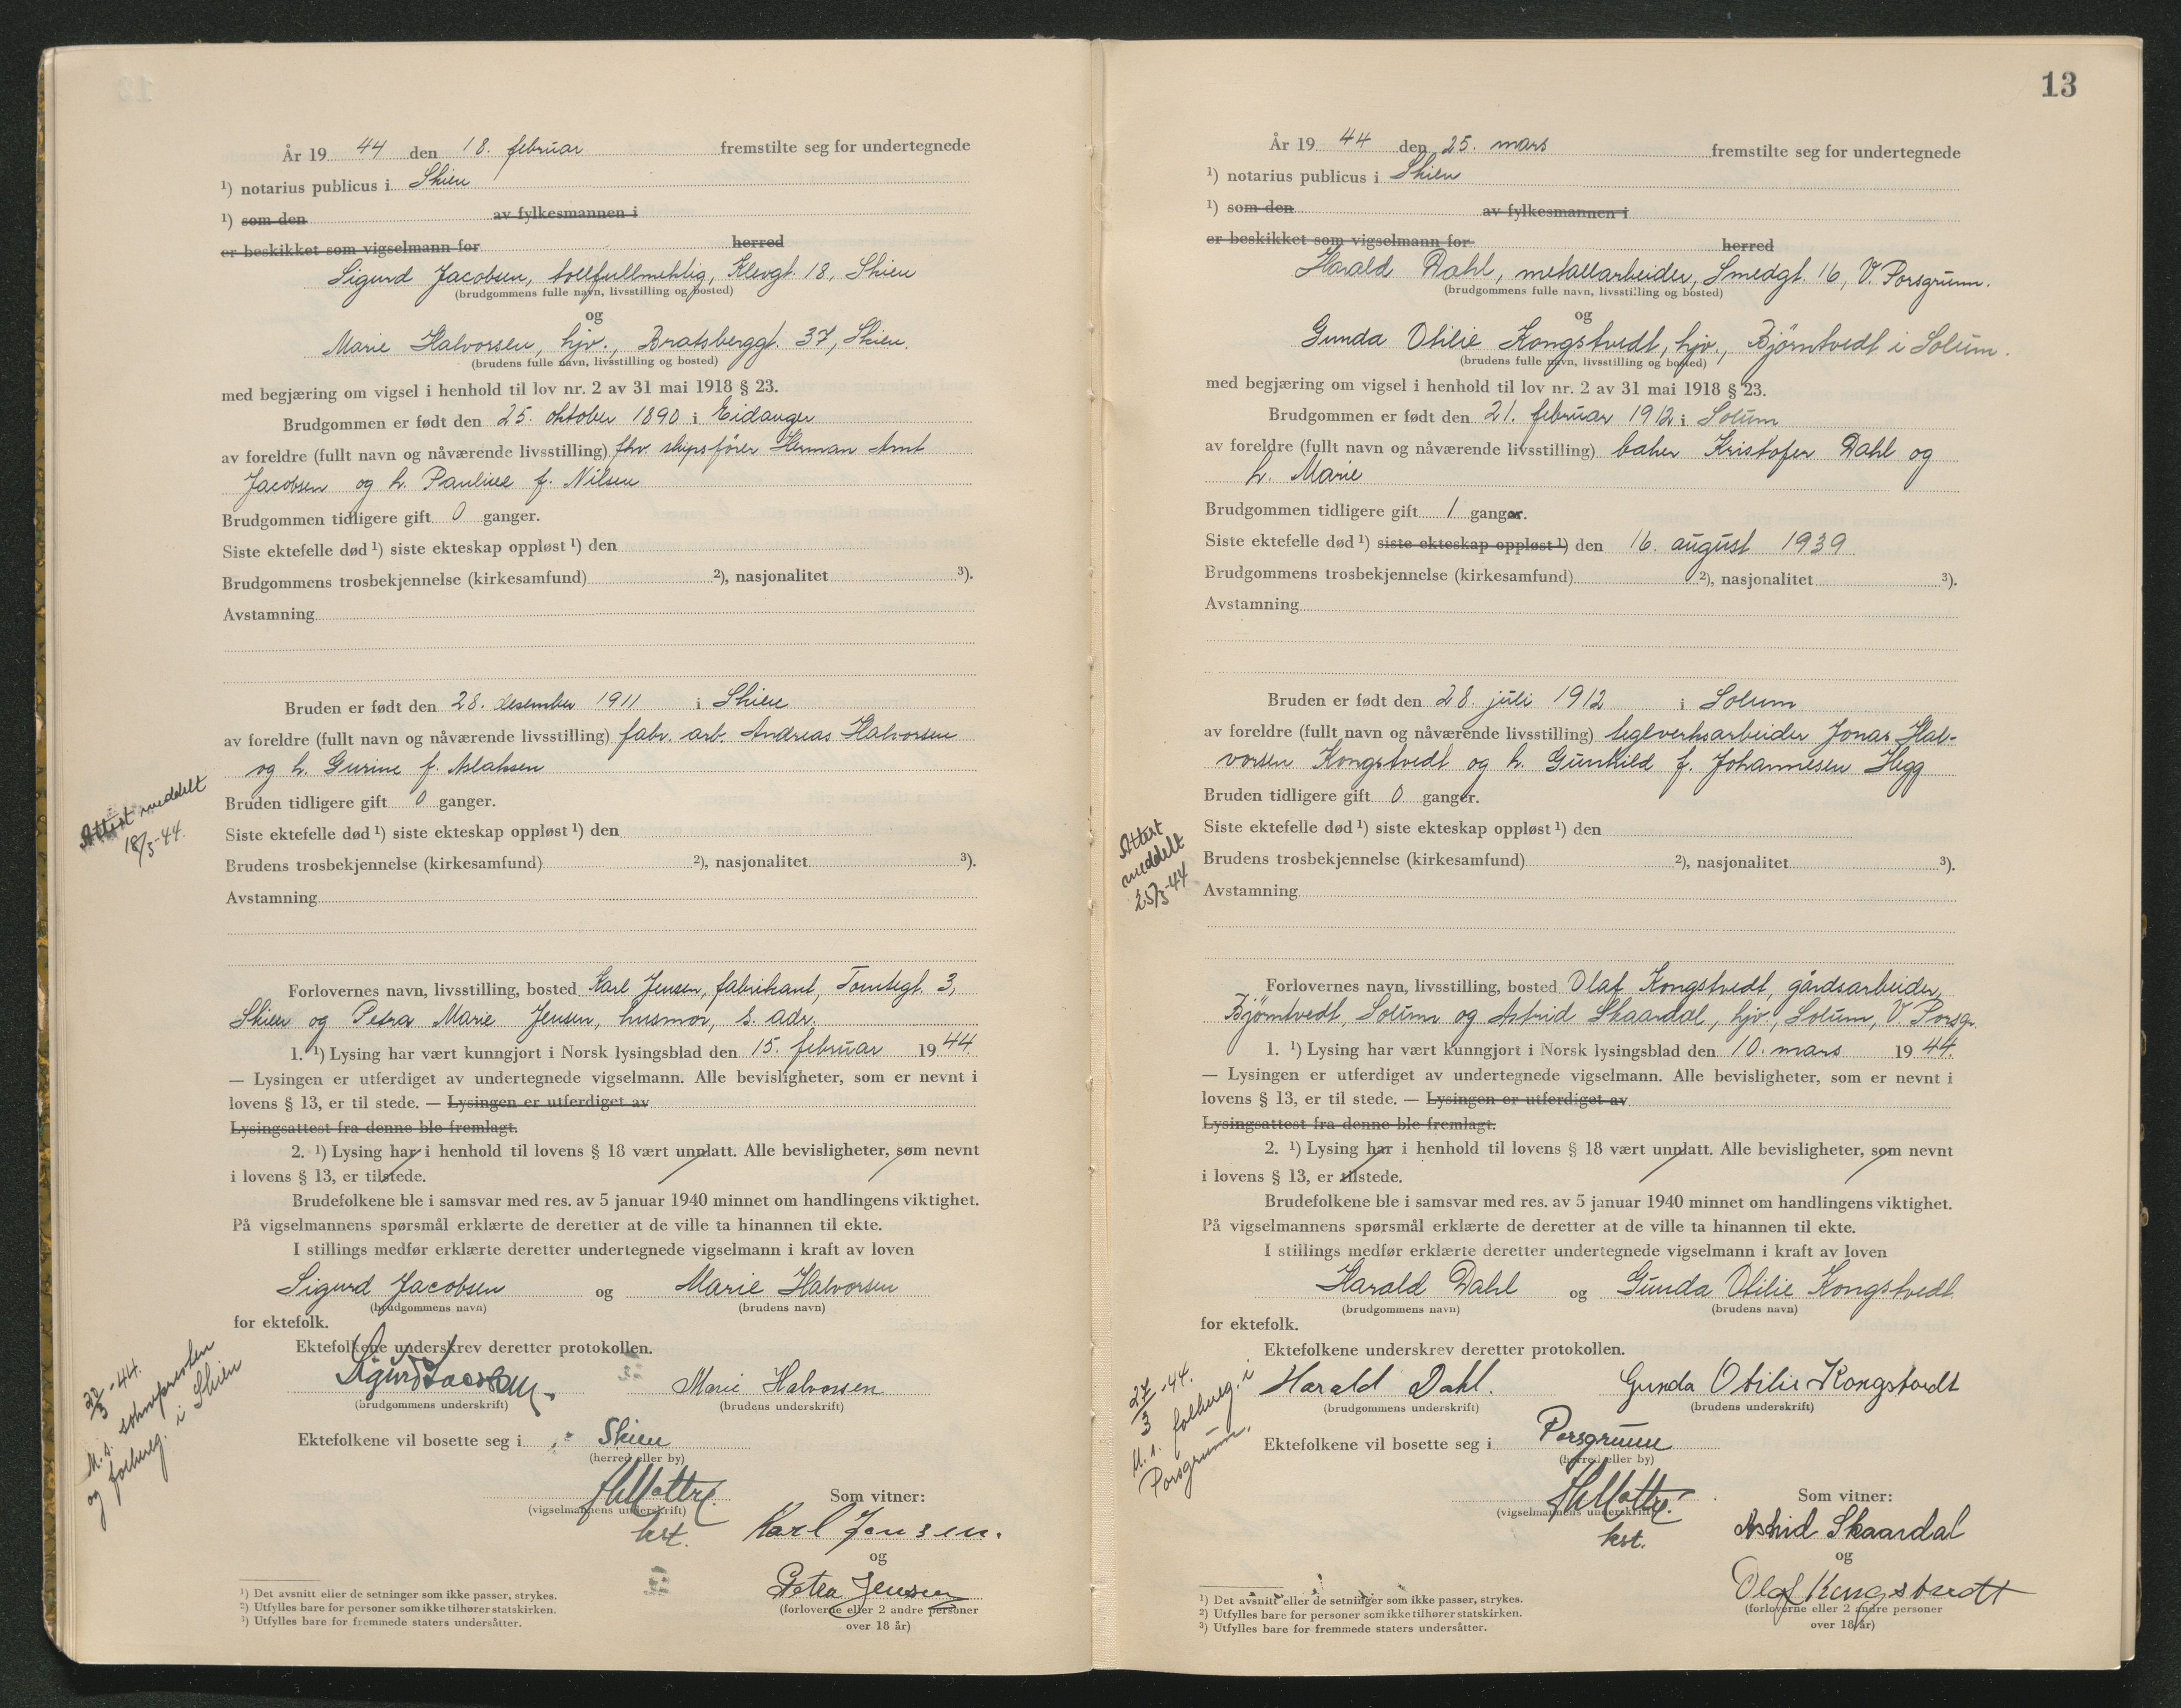 År 19 44 den 18. februar fremstilte seg for undertegnede
¹) notarius publicus i Skien
¹) som den av fylkesmannen i
er beskikket som vigselmann for herred
Sigurd Jacobsen, tollfullmektig, Klevgt. 18, Skien
(brudgommens fulle navn, livsstilling og bosted)
og
Marie Halvorsen, hjv., Bratsberggt. 37, Skien.
(brudens fulle navn, livsstilling og bosted)
med begjæring om vigsel i henhold til lov nr. 2 av 31 mai 1918 § 23.
Brudgommen er født den 25. oktober 1890 i Eidanger
av foreldre (fullt navn og nåværende livsstilling) fhv. skipsfører Herman Amt
Jacobsen og h. Pauline f. Nilsen
Brudgommen tidligere gift 0 ganger.
Siste ektefelle død ¹) siste ekteskap oppløst ¹) den
Brudgommens trosbekjennelse (kirkesamfund) ²), nasjonalitet ³).
Avstamning
Bruden er født den 28. desember 1911 i Skien
av foreldre (fullt navn og nåværende livsstilling) fabr. arb. Andreas Halvorsen
og h. Gurine f. Aslaksen
Bruden tidligere gift 0 ganger.
Siste ektefelle død ¹) siste ekteskap oppløst ¹) den
Brudens trosbekjennelse (kirkesamfund) ²), nasjonalitet ³).
Avstamning
Attest meddelt
18/3-44.
Forlovernes navn, livsstilling, bosted Karl Jensen, fabrikant, Tomtegt. 3,
Skien og Petra Marie Jensen, husmor, s. adr.
1. ¹) Lysing har vært kunngjort i Norsk lysingsblad den 15. februar 1944.
— Lysingen er utferdiget av undertegnede vigselmann. Alle bevisligheter, som er nevnt i
lovens § 13, er til stede. — Lysingen er utferdiget av
Lysingsattest fra denne ble fremlagt.
2. ¹) Lysing har i henhold til lovens § 18 vært unnlatt. Alle bevisligheter, som nevnt
i lovens § 13, er tilstede.
Brudefolkene ble i samsvar med res. av 5 januar 1940 minnet om handlingens viktighet.
På vigselmannens spørsmål erklærte de deretter at de ville ta hinannen til ekte.
I stillings medfør erklærte deretter undertegnede vigselmann i kraft av loven
Sigurd Jacobsen og Marie Halvorsen
(brudgommens navn) (brudens navn)
for ektefolk.
Ektefolkene underskrev deretter protokollen.
Sigurd Jacobsen Marie Halvorsen
(brudgommens underskrift) (brudens underskrift)
Ektefolkene vil bosette seg i Skien
(herred eller by)
-44.
M. s. soknepresten
og folkreg. i Skien
(vigselmannens underskrift) Som vitner:
kst. Karl Jensen.
og
Petra Jensen
(forloverne eller 2 andre personer
over 18 år)
¹) Det avsnitt eller de setninger som ikke passer, strykes.
²) Utfylles bare for personer som ikke tilhører statskirken.
³) Utfylles bare for fremmede staters undersåtter.
13
År 19 44 den 25. mars fremstilte seg for undertegnede
¹) notarius publicus i Skien
¹) som den av fylkesmannen i
er beskikket som vigselmann for herred
Harald Dahl, metallarbeider, Smedgt. 16, V. Porsgrunn.
(brudgommens fulle navn, livsstilling og bosted)
og
Gunda Otilie Kongstvedt, hjv., Bjørntvedt i Solum.
(brudens fulle navn, livsstilling og bosted)
med begjæring om vigsel i henhold til lov nr. 2 av 31 mai 1918 § 23.
Brudgommen er født den 21. februar 1912 i Solum
av foreldre (fullt navn og nåværende livsstilling) baker Kristofer Dahl og
h. Marie
Brudgommen tidligere gift 1 ganger.
Siste ektefelle død ¹) siste ekteskap oppløst ¹) den 16. august 1939
Brudgommens trosbekjennelse (kirkesamfund) ²), nasjonalitet ³).
Avstamning
Bruden er født den 28. juli 1912 i Solum
av foreldre (fullt navn og nåværende livsstilling) teglverksarbeider Jonas Hal-
vorsen Kongstvedt og h. Gunhild f. Johannesen Hegg
Bruden tidligere gift 0 ganger.
Siste ektefelle død ¹) siste ekteskap oppløst ¹) den
Brudens trosbekjennelse (kirkesamfund) ²), nasjonalitet ³).
Avstamning
Attest
meddelt
25/3-44
Forlovernes navn, livsstilling, bosted Olaf Kongstvedt, gårdsarbeider,
Bjørntvedt, Solum og Astrid Skaardal, hjv., Solum, V. Porsgr.
1. ¹) Lysing har vært kunngjort i Norsk lysingsblad den 10. mars 1944.
— Lysingen er utferdiget av undertegnede vigselmann. Alle bevisligheter, som er nevnt i
lovens § 13, er til stede. — Lysingen er utferdiget av
Lysingsattest fra denne ble fremlagt.
2. ¹) Lysing har i henhold til lovens § 18 vært unnlatt. Alle bevisligheter, som nevnt
i lovens § 13, er tilstede.
Brudefolkene ble i samsvar med res. av 5 januar 1940 minnet om handlingens viktighet.
På vigselmannens spørsmål erklærte de deretter at de ville ta hinannen til ekte.
I stillings medfør erklærte deretter undertegnede vigselmann i kraft av loven
Harald Dahl og Gunda Otilie Kongstvedt
(brudgommens navn) (brudens navn)
for ektefolk.
Ektefolkene underskrev deretter protokollen.
Harald Dahl. Gunda Otilie Kongstvedt
(brudgommens underskrift) (brudens underskrift)
Ektefolkene vil bosette seg i Porsgrunn
(herred eller by)
27/3-44.
M. s. folkereg. i
Porsgrunn.
(vigselmannens underskrift) Som vitner:
kst. Astrid Skaardal
og
Olaf Kongstvedt
(forloverne eller 2 andre personer
over 18 år)
¹) Det avsnitt eller de setninger som ikke passer, strykes.
²) Utfylles bare for personer som ikke tilhører statskirken.
³) Utfylles bare for fremmede staters undersåtter.